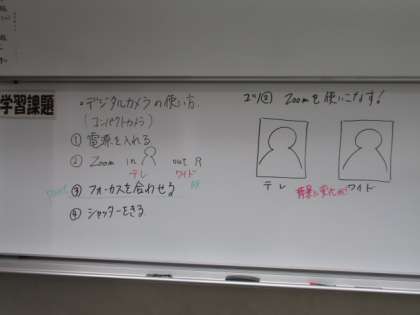 学習課題
・デジタルカメラの使い方
(コンパクトカメラ)
① 電源を入れる
② Zoom in out
テレ ワイド
③ フォーカスを合わせる
④ シャッターをきる
Zoomを使いこなす!
テレ ワイド